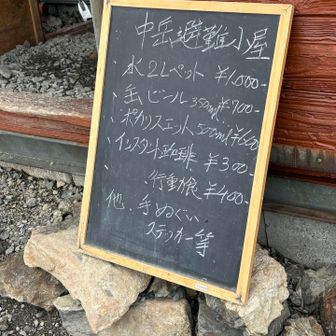 中岳避難小屋
・水2Lペット ¥1,000-
・缶ビール350ml ¥700-
・ポカリスエット500ml ¥600
・インスタント珈琲 ¥300-
・行動食 ¥400-
他、手ぬぐい、
ステッカー等